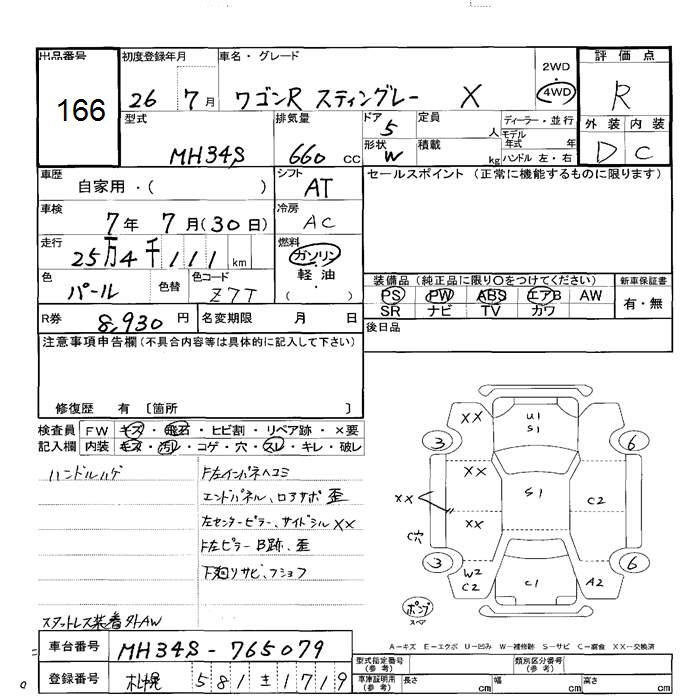 出品番号 初度登録年月 車名・グレード 2WD 評価点
166 26 7月 ワゴンR スティングレー X 4WD R
型式 排気量 ドア 5 定員 人 ディーラー・並行 外装 内装
MH34S 660 cc 形状 W 積載 kg モデル年式 年 ハンドル 左・右 D C
車歴 自家用・( ) シフト AT セールスポイント(正常に機能するものに限ります)
車検 7年 7月(30日) 冷房 AC
走行 25万4千111km 燃料 ガソリン 軽油 ( )
色 パール 色替 色コード Z7T
装備品(純正品に限り○をつけてください) 新車保証書
PS PW ABS エアB AW 有・無
SR ナビ TV カワ
R券 8,930円 名変期限 月 日 後日品
注意事項申告欄(不具合内容等は具体的に記入して下さい)
修復歴 有 〔箇所 〕
検査員 FW キズ・飛石・ヒビ割・リペア跡・×要
記入欄 内装 キズ・汚レ・コゲ・穴・スレ・キレ・破レ
ハンドルハゲ
スタットレス装着外AW
F左インパネヘコミ
エンドパネル、ロアサポ歪
左センターピラー、サイドシルXX
F左ピラーB跡、歪
下廻りサビ、フショク
XX U1 S1
3 6
XX S1 C2
XX XX
C穴
3 6
W2 C2 C1 A2
ポンプ
スペア
A-キズ E-エクボ U-凹み W-補修跡 S-サビ C-腐食 XX-交換済
車台番号 MH34S-765079
登録番号 札幌 581 ± 1719
型式指定番号(参考) 類別区分番号(参考)
車庫証明用(参考) 長さ cm 幅 cm 高さ cm